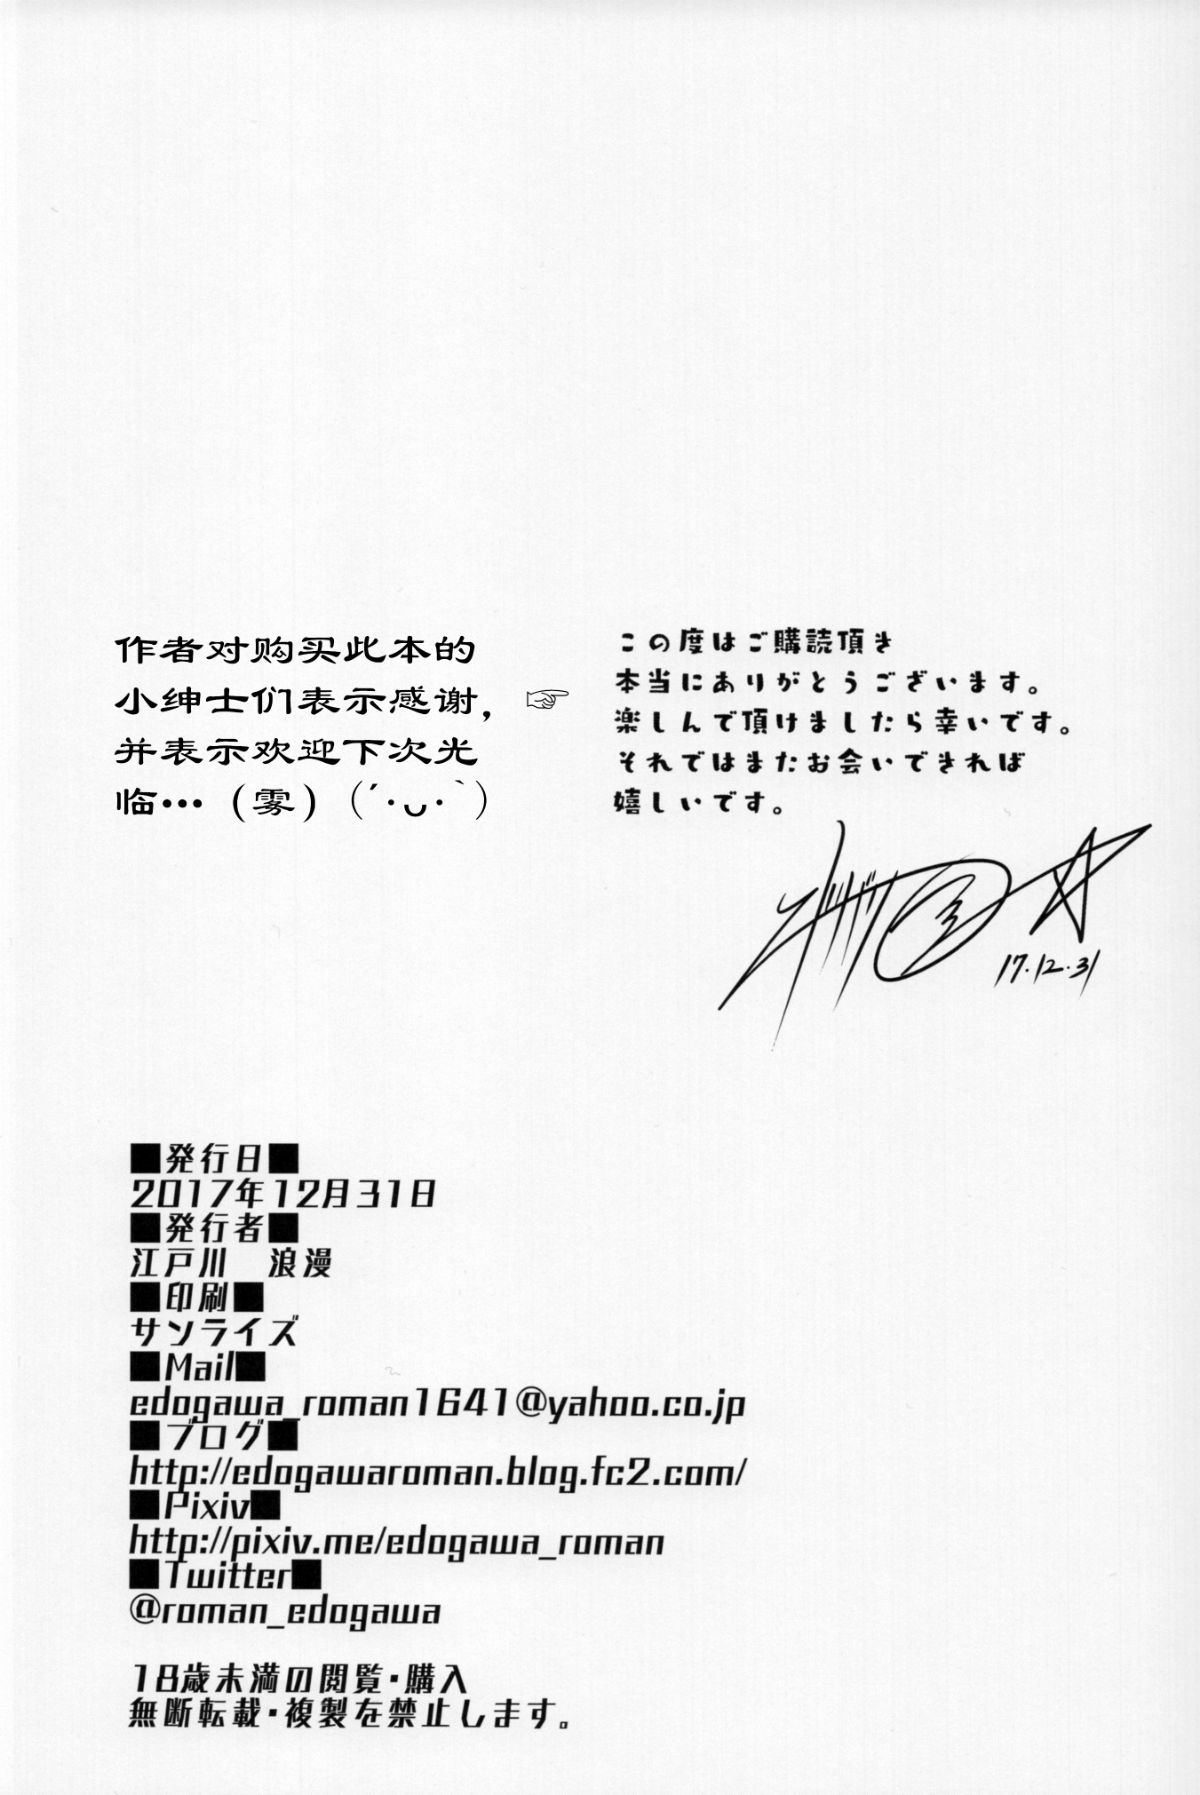 作者对购买此本的
小绅士们表示感谢，☞
并表示欢迎下次光
临…（雾）（´･ᴗ･`）
この度はご購読頂き
本当にありがとうございます。
楽しんで頂けましたら幸いです。
それではまたお会いできれば
嬉しいです。
17.12.31
■発行日■
2017年12月31日
■発行者■
江戸川　浪漫
■印刷■
サンライズ
■Mail■
edogawa_roman1641@yahoo.co.jp
■ブログ■
http://edogawaroman.blog.fc2.com/
■Pixiv■
http://pixiv.me/edogawa_roman
■Twitter■
@roman_edogawa
18歳未満の閲覧・購入
無断転載・複製を禁止します。